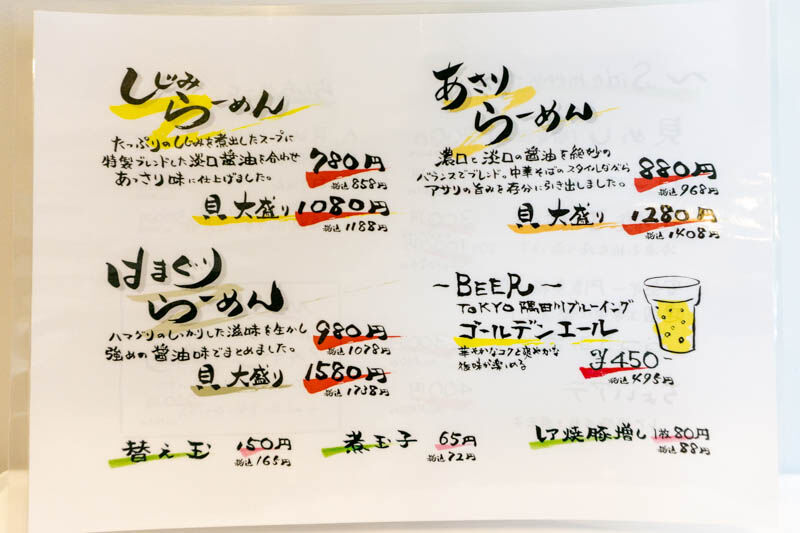 しじみ
らーめん
たっぷりのしじみを煮出したスープに
特製ブレンドした淡口醤油を合わせ
あっさり味に仕上げました。
780円
税込858円
貝大盛り1080円
税込1188円
あさり
らーめん
濃口と淡口の醤油を絶妙の
バランスでブレンド。中華そばのスタイルながら
アサリの旨みを存分に引き出しました。
880円
税込968円
貝大盛り1280円
税込1408円
はまぐり
らーめん
ハマグリのしっかりした滋味を生かし
強めの醤油味でまとめました。
980円
税込1078円
貝大盛り1580円
税込1738円
～BEER～
TOKYO隅田川ブルーイング
ゴールデンエール
華やかなコクと爽やかな
後味が楽しめる
¥450-
税込495円
替え玉 150円
税込165円
煮玉子 65円
税込72円
レア焼豚増し1枚80円
税込88円